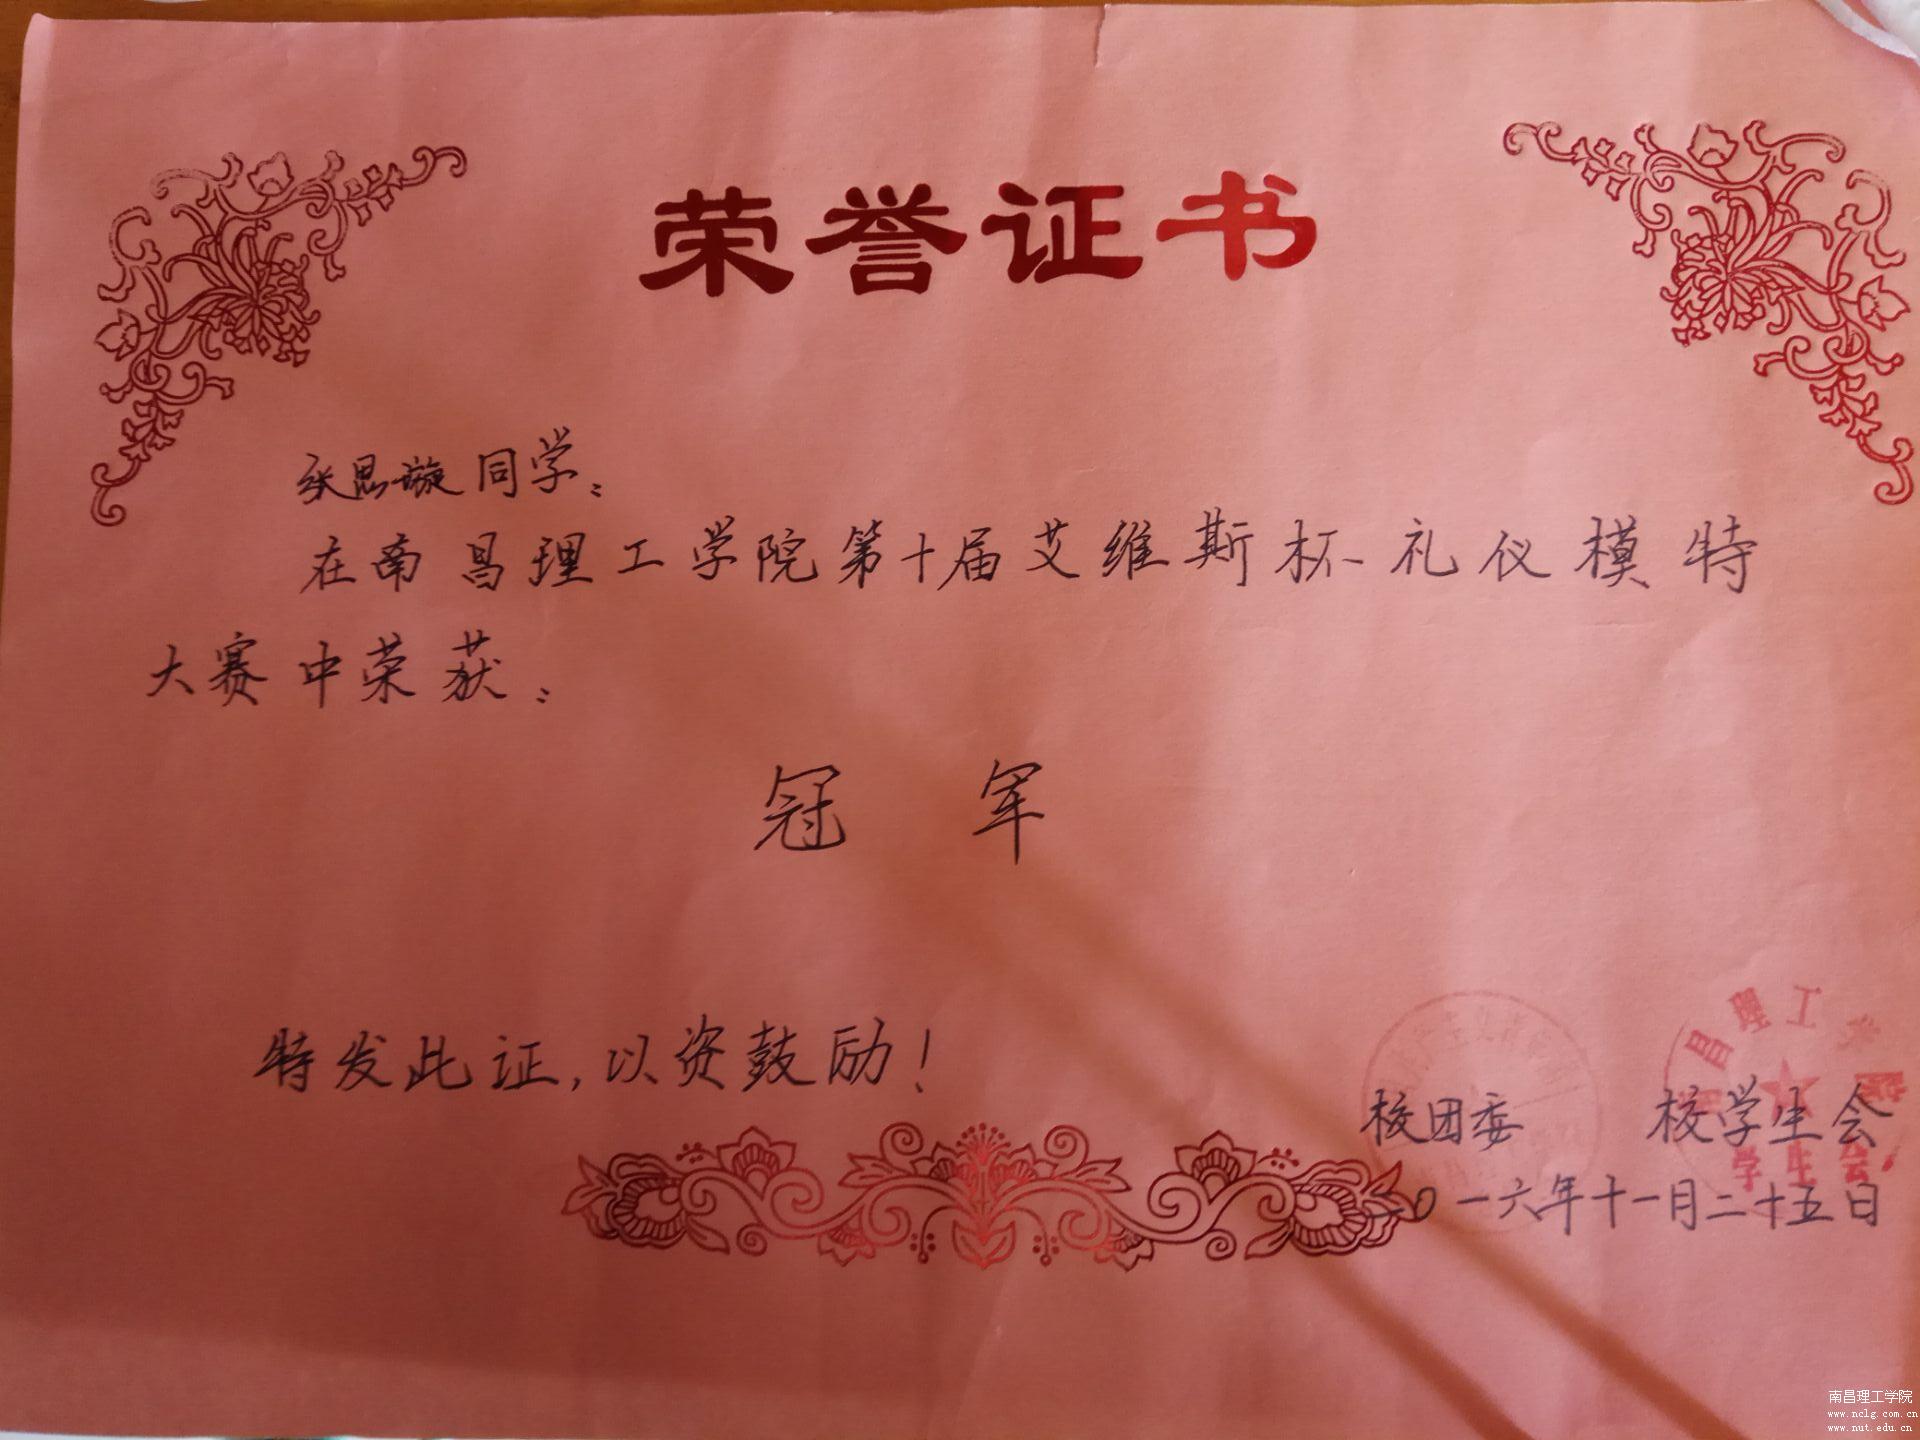 荣誉证书
张思璇同学：
在南昌理工学院第十届艾维斯杯礼仪模特
大赛中荣获：
冠 军
特发此证，以资鼓励！
南昌理工学院
学生会
校团委 校学生会
二〇一六年十一月二十五日
南昌理工学院
www.nclg.com.cn
www.nut.edu.cn